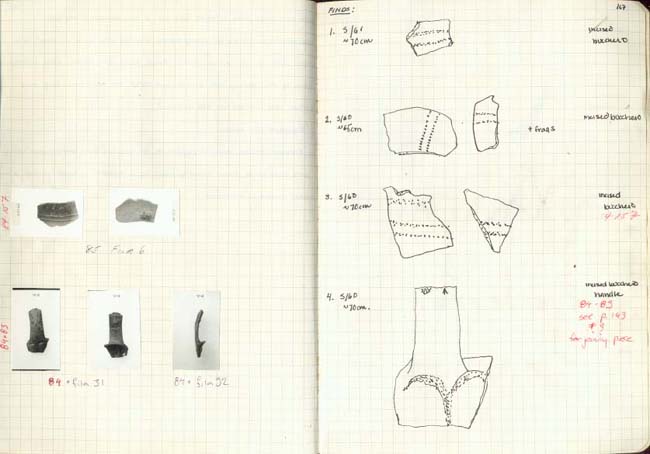 84·157
85 Film 6
84·83
84 • film 31
84 • film 32
FINDS:
167
1. S/61
~70cm
incised
bucchero
2. S/60
~65cm
+ frags
incised bucchero
3. S/60
~70cm
incised
bucchero
4. S/60
~70cm.
incised bucchero
handle
84-83
see p. 143
# 9
for joining piece